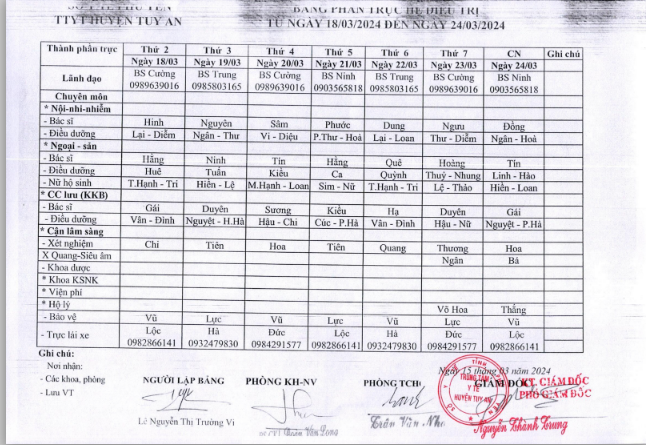 SỞ Y TẾ PHÚ YÊN
TTYT HUYỆN TUY AN
BẢNG PHÂN TRỰC HỆ ĐIỀU TRỊ
TỪ NGÀY 18/03/2024 ĐẾN NGÀY 24/03/2024
Thành phần trực Thứ 2 Thứ 3 Thứ 4 Thứ 5 Thứ 6 Thứ 7 CN Ghi chú
Ngày 18/03 Ngày 19/03 Ngày 20/03 Ngày 21/03 Ngày 22/03 Ngày 23/03 Ngày 24/03
Lãnh đạo BS Cường BS Trung BS Cường BS Ninh BS Trung BS Cường BS Ninh
0989639016 0985803165 0989639016 0903565818 0985803165 0989639016 0903565818
Chuyên môn
* Nội-nhi-nhiễm
- Bác sĩ Hinh Nguyên Sâm Phước Dung Ngưu Đồng
- Điều dưỡng Lại - Diễm Ngân - Thư Vi - Diệu P.Thư - Hoà Lại - Loan Thư - Diễm Ngân - Hoà
* Ngoại - sản
- Bác sĩ Hằng Ninh Tín Hằng Quê Hoàng Tín
- Điều dưỡng Huê Tuấn Kiều Ca Quỳnh Thuý - Nhung Linh - Hảo
- Nữ hộ sinh T.Hạnh - Tri Hiền - Lệ M.Hạnh - Loan Sim - Nữ T.Hạnh - Tri Lệ - Thảo Hiền - Loan
* CC lưu (KKB)
- Bác sĩ Gái Duyên Sương Kiều Hạ Duyên Gái
- Điều dưỡng Vân - Đình Nguyệt - H.Hà Hậu - Chi Cúc - P.Hà Vân - Đình Hậu - Nữ Nguyệt - P.Hà
* Cận lâm sàng
- Xét nghiệm Chi Tiên Hoa Tiên Quang Thương Hoa
X Quang-Siêu âm Ngân Bá
- Khoa dược
* Khoa KSNK
* Viện phí
* Hộ lý Võ Hoa Thắng
- Bảo vệ Vũ Lực Vũ Lực Vũ Lực Vũ
- Trực lái xe Lộc Hà Đức Lộc Hà Đức Lộc
0982866141 0932479830 0984291577 0982866141 0932479830 0984291577 0982866141
Ghi chú:
Nơi nhận:
- Các khoa, phòng
- Lưu VT
Ngày 15 tháng 03 năm 2024
NGƯỜI LẬP BẢNG PHÒNG KH-NV PHÒNG TCHC GIÁM ĐỐC
KT. GIÁM ĐỐC
PHÓ GIÁM ĐỐC
TRUNG TÂM
Y TẾ
HUYỆN TUY AN
Lê Nguyễn Thị Trường Vi
Trần Văn Nho
Nguyễn Thành Trung